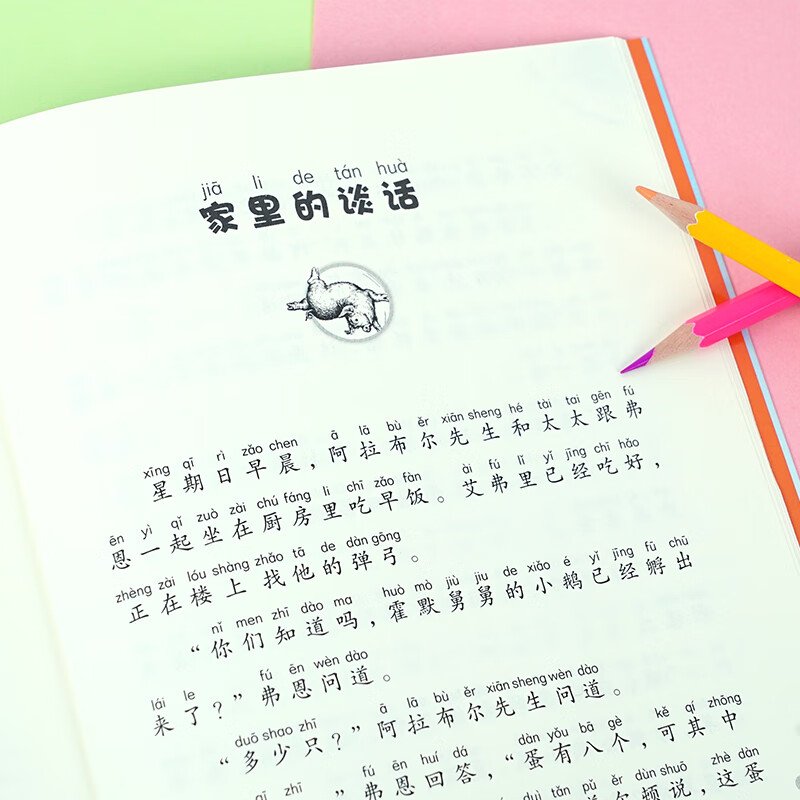 jiā li de tán huà
家里的谈话
xīng qī rì zǎo chen ā lā bù ěr xiān sheng hé tài tai gēn fú
星期日早晨，阿拉布尔先生和太太跟弗
ēn yì qǐ zuò zài chú fáng li chī zǎo fàn ài fú lǐ yǐ jīng chī hǎo
恩一起坐在厨房里吃早饭。艾弗里已经吃好，
zhèng zài lóu shàng zhǎo tā de dàn gōng
正在楼上找他的弹弓。
nǐ men zhī dào ma huò mò jiù jiu de xiǎo é yǐ jīng fū chū
“你们知道吗，霍默舅舅的小鹅已经孵出
lái le fú ēn wèn dào
来了？”弗恩问道。
duō shao zhī ā lā bù ěr xiān sheng wèn dào
“多少只？”阿拉布尔先生问道。
fú ēn huí dá dàn yǒu bā gè kě qí zhōng
”弗恩回答，“蛋有八个，可其中
duì tǎn pǔ ěr dùn shuō zhè dàn
尔顿说，这蛋